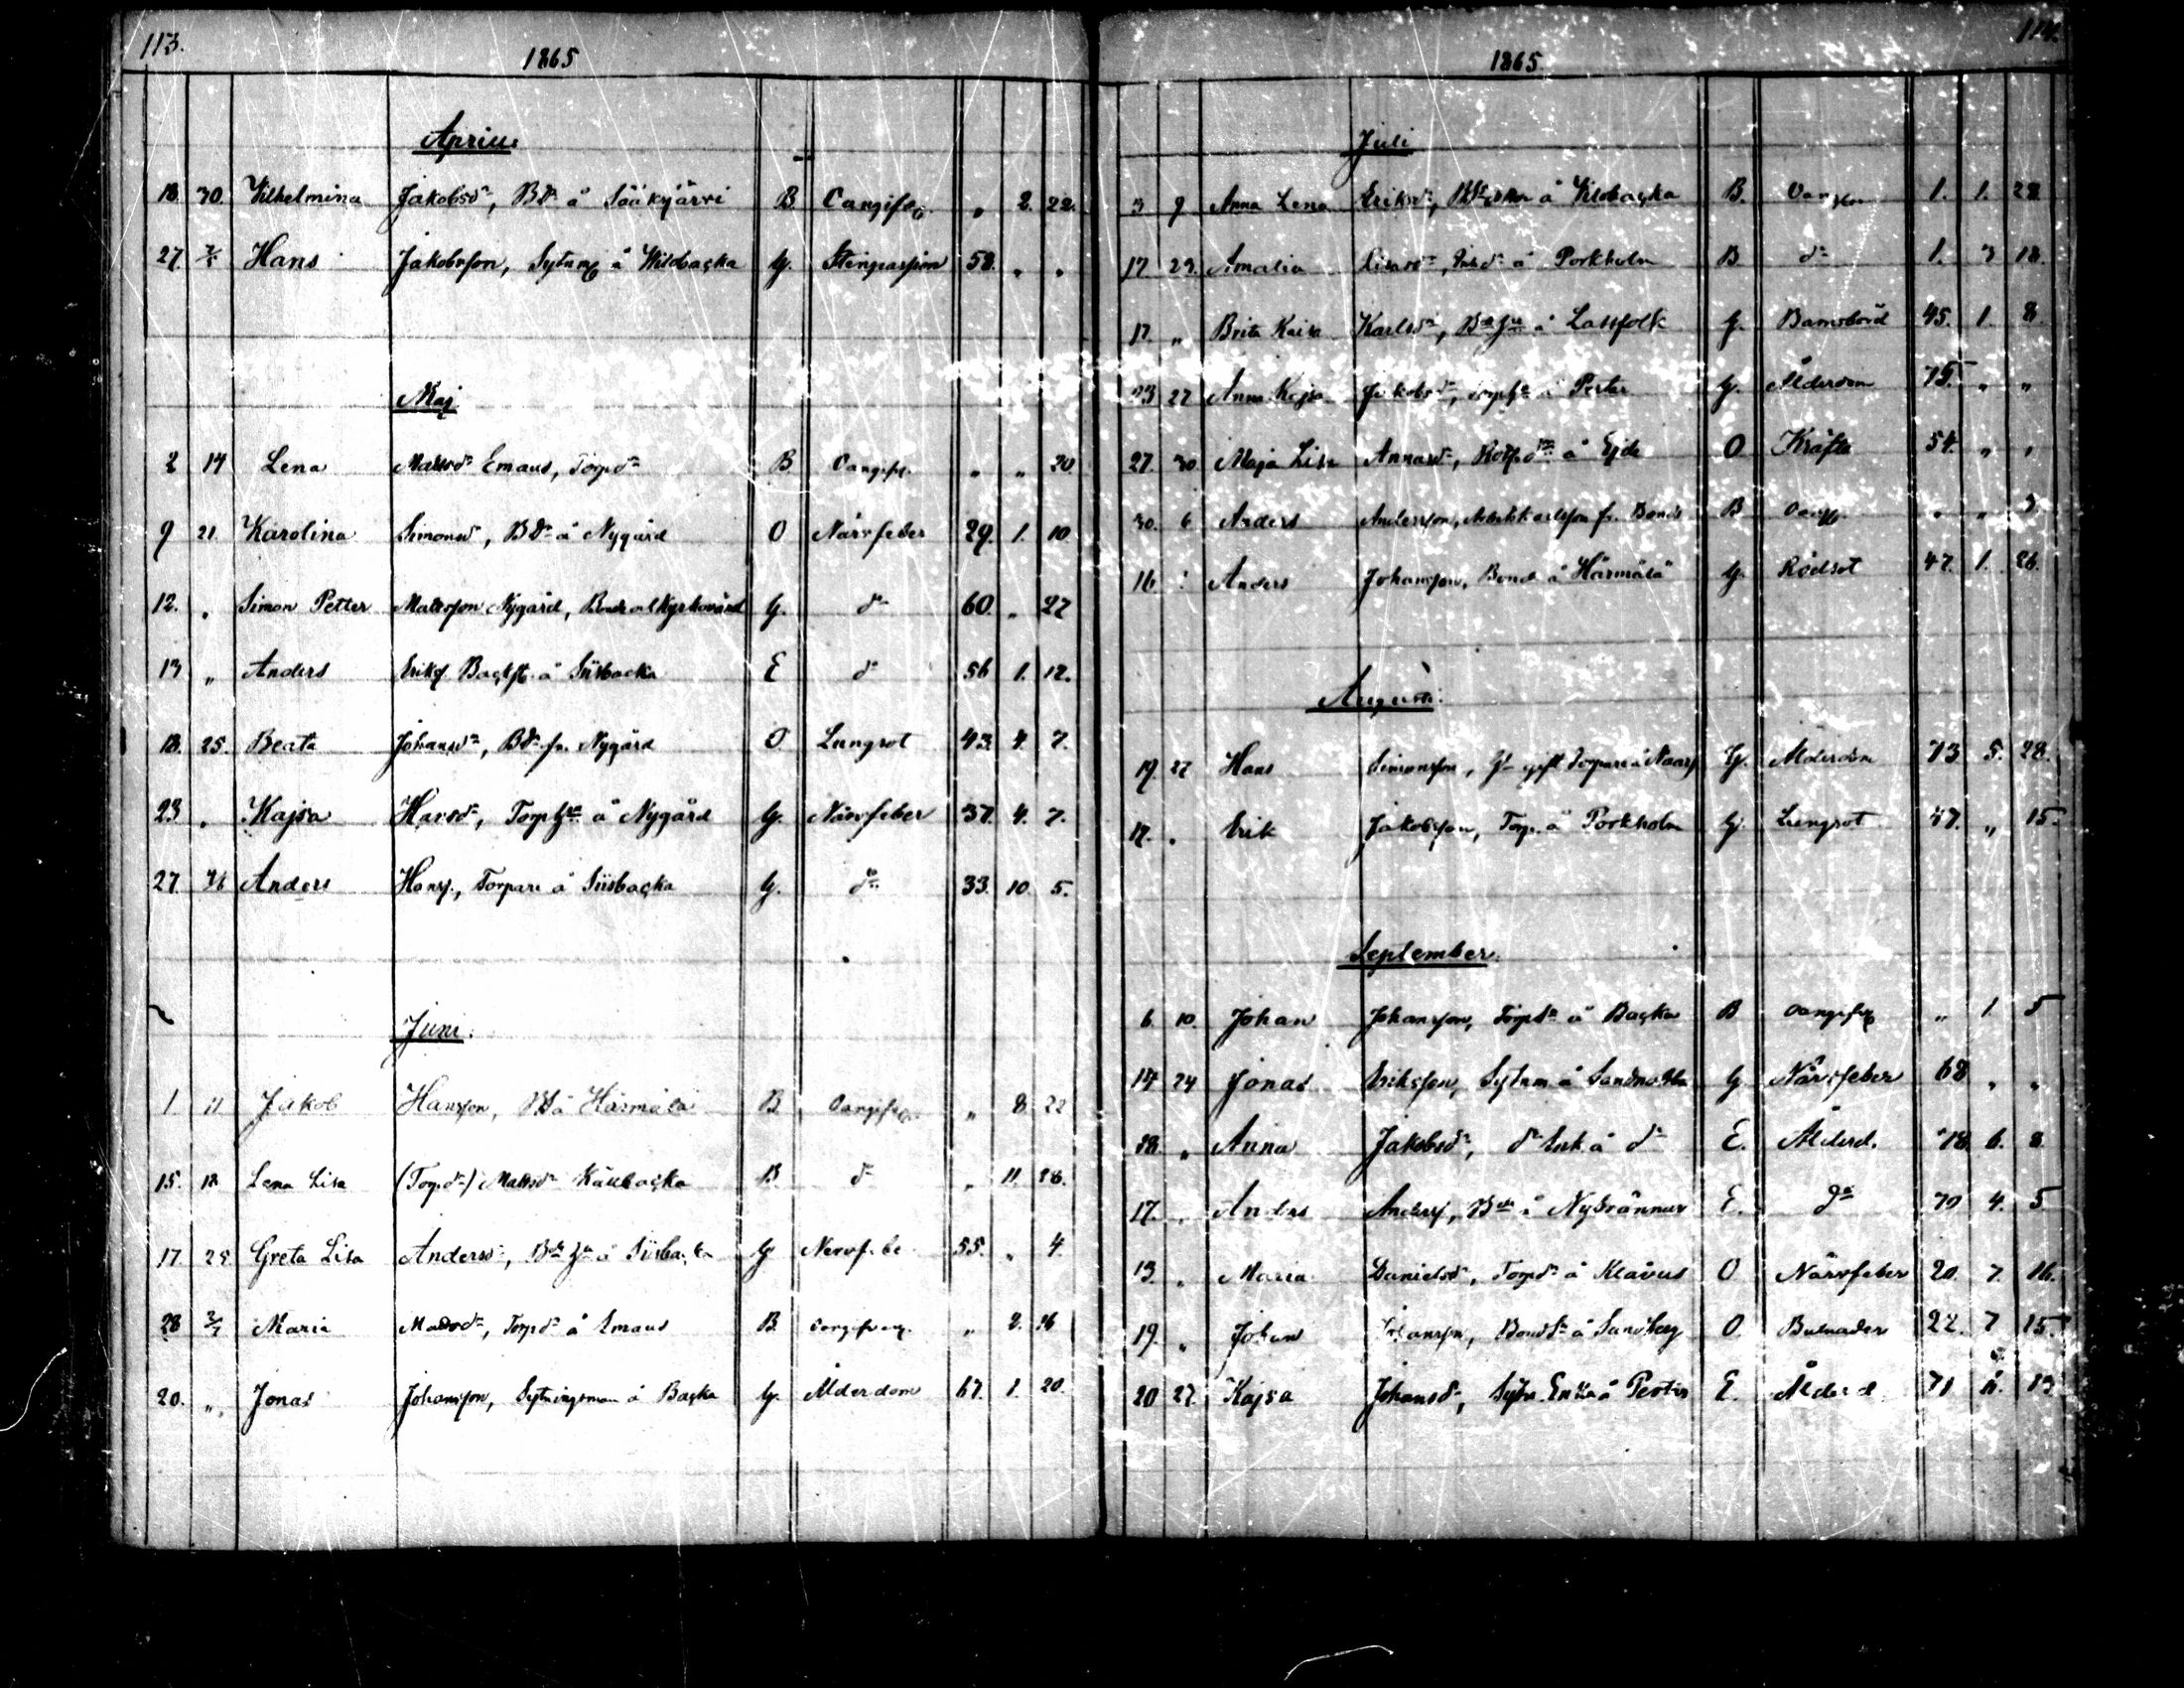 113.
1865
Aprill
18. 30. Vilhelmina Jakobsdr, Bdr å Sääksjärvi B Oangifv. „ 2. 22.
27. 7/5 Hans Jakobsson, Sytnm å Wildbacka G. Stenpassion 58. „ „
Maj
2 14 Lena Mattsdr Emaus, Torpdr B Oangifv. „ „ 20
9 21 Karolina Simonsd, Bdr å Nygård O Närvfeber 29. 1. 10.
12. „ Simon Petter Mattsson Nygård, Bonde och Kyrkovärd G. dr 60. „ 27
13 „ Anders Eriks. Backst. å Siisbacka E dr 56 1. 12.
18. 25. Beata Johansdr, Bdr fr. Nygård O Lungsot 43. 4. 7.
23. „ Kajsa Hansdr, Torp å Nygård G. Närvfeber 37. 4. 7.
27. Anders Hanss., Torpare å Siisbacka G. do 33. 10. 5.
Juni.
1 11 Jakob Hansson, å Härmälä B Oangifv. „ 8 22
15. 18 Lena Lisa (Torpdr) Mattsdr Källbacka B. dr „ 11. 28.
17. 25 Greta Lisa Andersdr, å Siisbacka G Nervfeber 55. „ 4.
28 2/7 Maria Mattsdr, Torpdr å Emaus B. „ 2. 16
20. „ Jonas Johansson, Sytningsman å Backa G. Ålderdom 67. 1. 20.
114.
1865.
Juli
3 9 Anna Lena Eriksdr, å Wildbacka B. 1. 1. 28
17 23. Amalia Lisasdr, å Porkholm B. dr 1. 3 18.
17. „ Brita Kaisa Karlsdr, å Lassfolk G. Barnsbörd 45. 1. 8.
23 27 Anna Kajsa Jakobsdr, å Perters G. Ålderdom 75. „ „
27. 30. Maja Lisa Annasdr, å Ejde O Kräfta 54. „ „
30. 6 Anders Andersson, fr. Bonds B „ „ 3
16 Anders Johansson, Bonde å Härmälä G. Rödsot 47. 1. 26.
Augusti.
19. 27 Hans Simonsson, gift Torpare å G. Ålderdom 73 5. 28.
17. „ Erik Jakobsson, Torp. å Porkholm G. Lungsot 47. „ 15.
September.
6. 10. Johan Johansson, Torpdr å Backa B Oangifv „ 1. 5
14 24 Jonas Eriksson, Sytnm å G Närvfeber 68 „ „
18. „ Anna Jakobsdr, dr Enk. å dr E. Ålderd. 78. 6. 8.
17. „ Anders Anderss, å Nybrännar E. do 70 4. 5
13. „ Maria Danielsdr, Torpdr å Klävus O Närvfeber 20. 7. 16.
19. „ Johan Johansson, å Sandberg O. 22. 7. 15.
20 27. Kajsa Johansdr, Sytn. Enka å E. Ålderd. 71 13